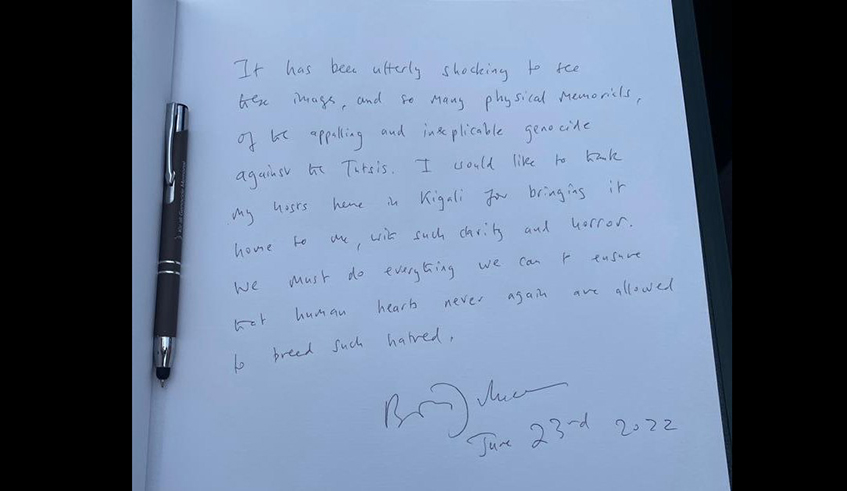 It has been utterly shocking to see
these images, and so many physical memorials,
of the appalling and inexplicable genocide
against the Tutsis. I would like to thank
my hosts here in Kigali for bringing it
home to me, with such clarity and horror.
We must do everything we can to ensure
that human hearts never again are allowed
to breed such hatred.
June 23rd 2022